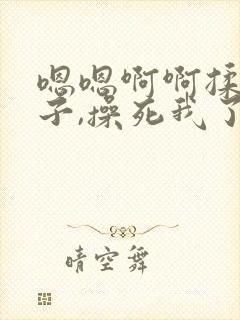 嗯嗯啊啊揉
子,操死我了
晴空舞